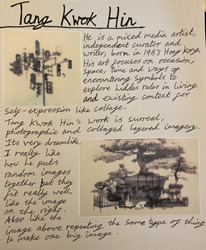 Tang Kwok Hin
He is a mixed media artist,
independent curator and
writer, born in 1983 Hong Kong.
His art focuses on occasion,
space, time and ways of
encountering symbols to
explore hidden rules in living
and existing context for
self-expression like collage.
Tang Kwok Hin's work is surreal,
photographic and collaged layered imagery.
Its very dreamlike.
I really like
how he puts
random images
together but they
fit really well,
like the image
on the right.
Also like the
image above repeating the same type of thing
to make one big image.